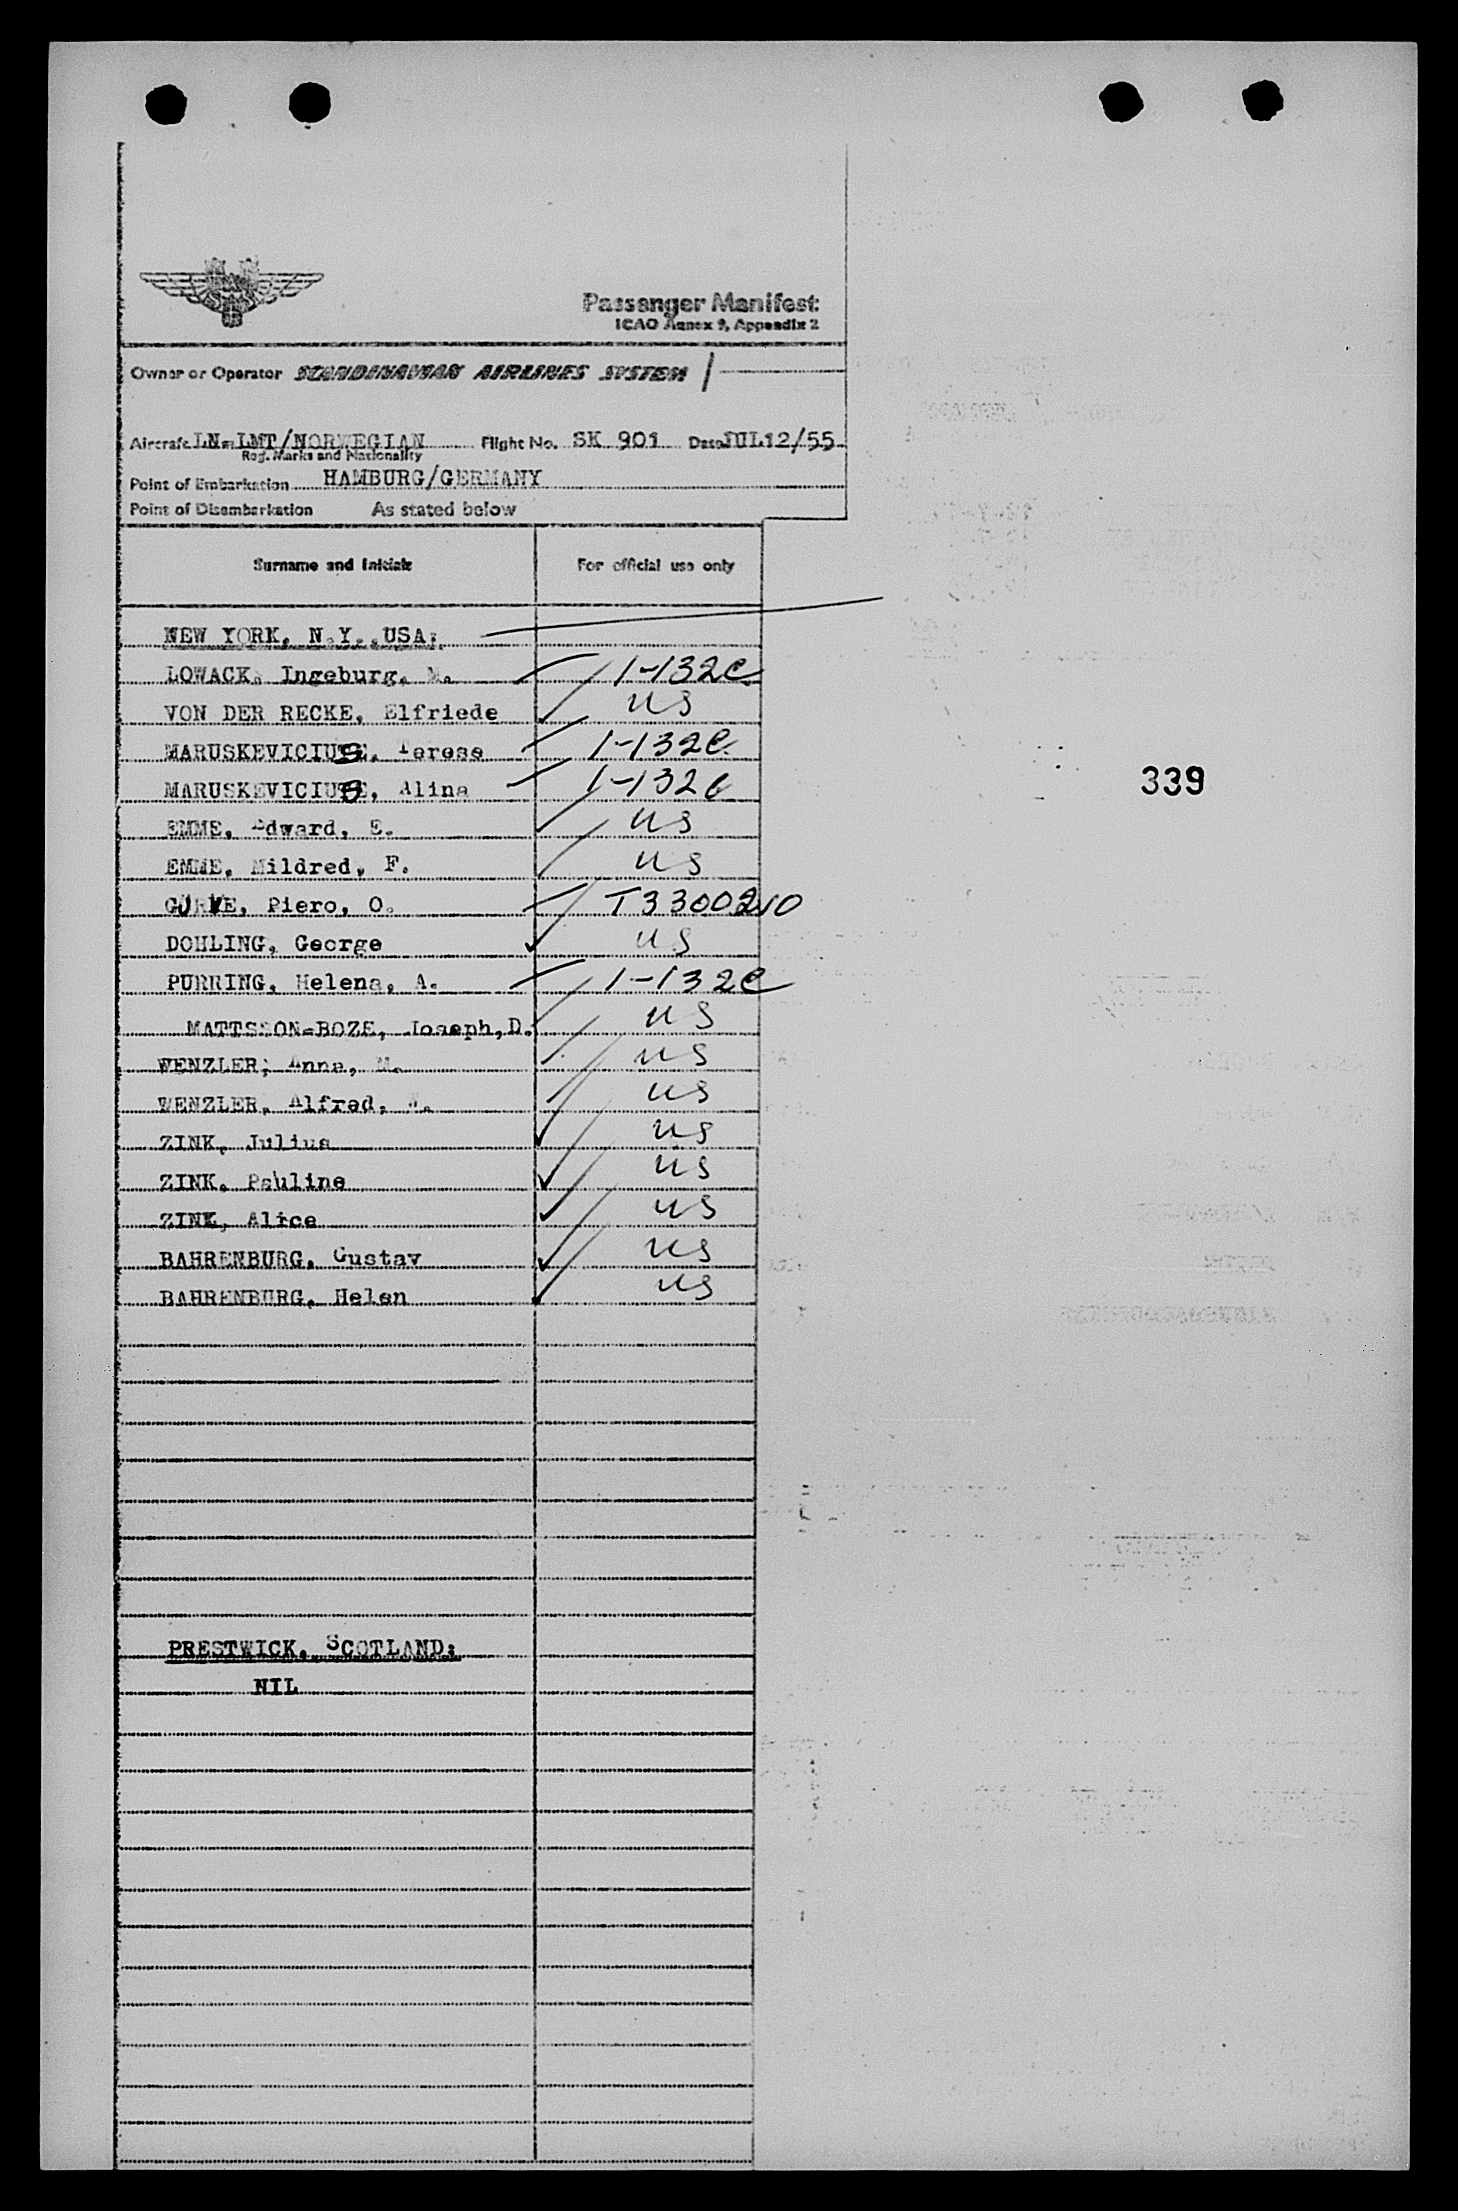 Passenger Manifest
ICAO Annex 9, Appendix 2
Owner or Operator SCANDINAVIAN AIRLINES SYSTEM
Aircraft LN-LMT/NORWEGIAN Flight No. SK 901 Date JUL12/55
Reg. Marks and Nationality
Point of Embarkation HAMBURG/GERMANY
Point of Disembarkation As stated below
Surname and Initials For official use only
NEW YORK, N.Y.,USA:
LOWACK, Ingeburg, M. 1-132C
VON DER RECKE, Elfriede US
MARUSKEVICIUS, Terese 1-132C
MARUSKEVICIUS, Alina 1-132C
EMME, Edward, E. US
EMME, Mildred, F. US
Piero, O. T3300210
DOHLING, George US
PURRING, Helena, A. 1-132C
MATTSSON-BOZE, Joseph,D. US
WENZLER, Anna, M. US
WENZLER, Alfred, W. US
ZINK, Julius US
ZINK, Pauline US
ZINK, Alice US
BAHRENBURG, Gustav US
BAHRENBURG, Helen US
339
PRESTWICK, SCOTLAND:
NIL